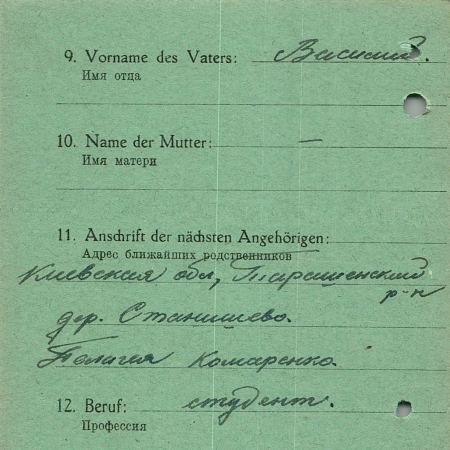 9. Vorname des Vaters: Василий.
Имя отца
10. Name der Mutter: —
Имя матери
11. Anschrift der nächsten Angehörigen:
Адрес ближайших родственников
Киевская обл, Таращенский
р-н
дер. Станишево.
Пелагея Комаренко.
12. Beruf: студент.
Профессия